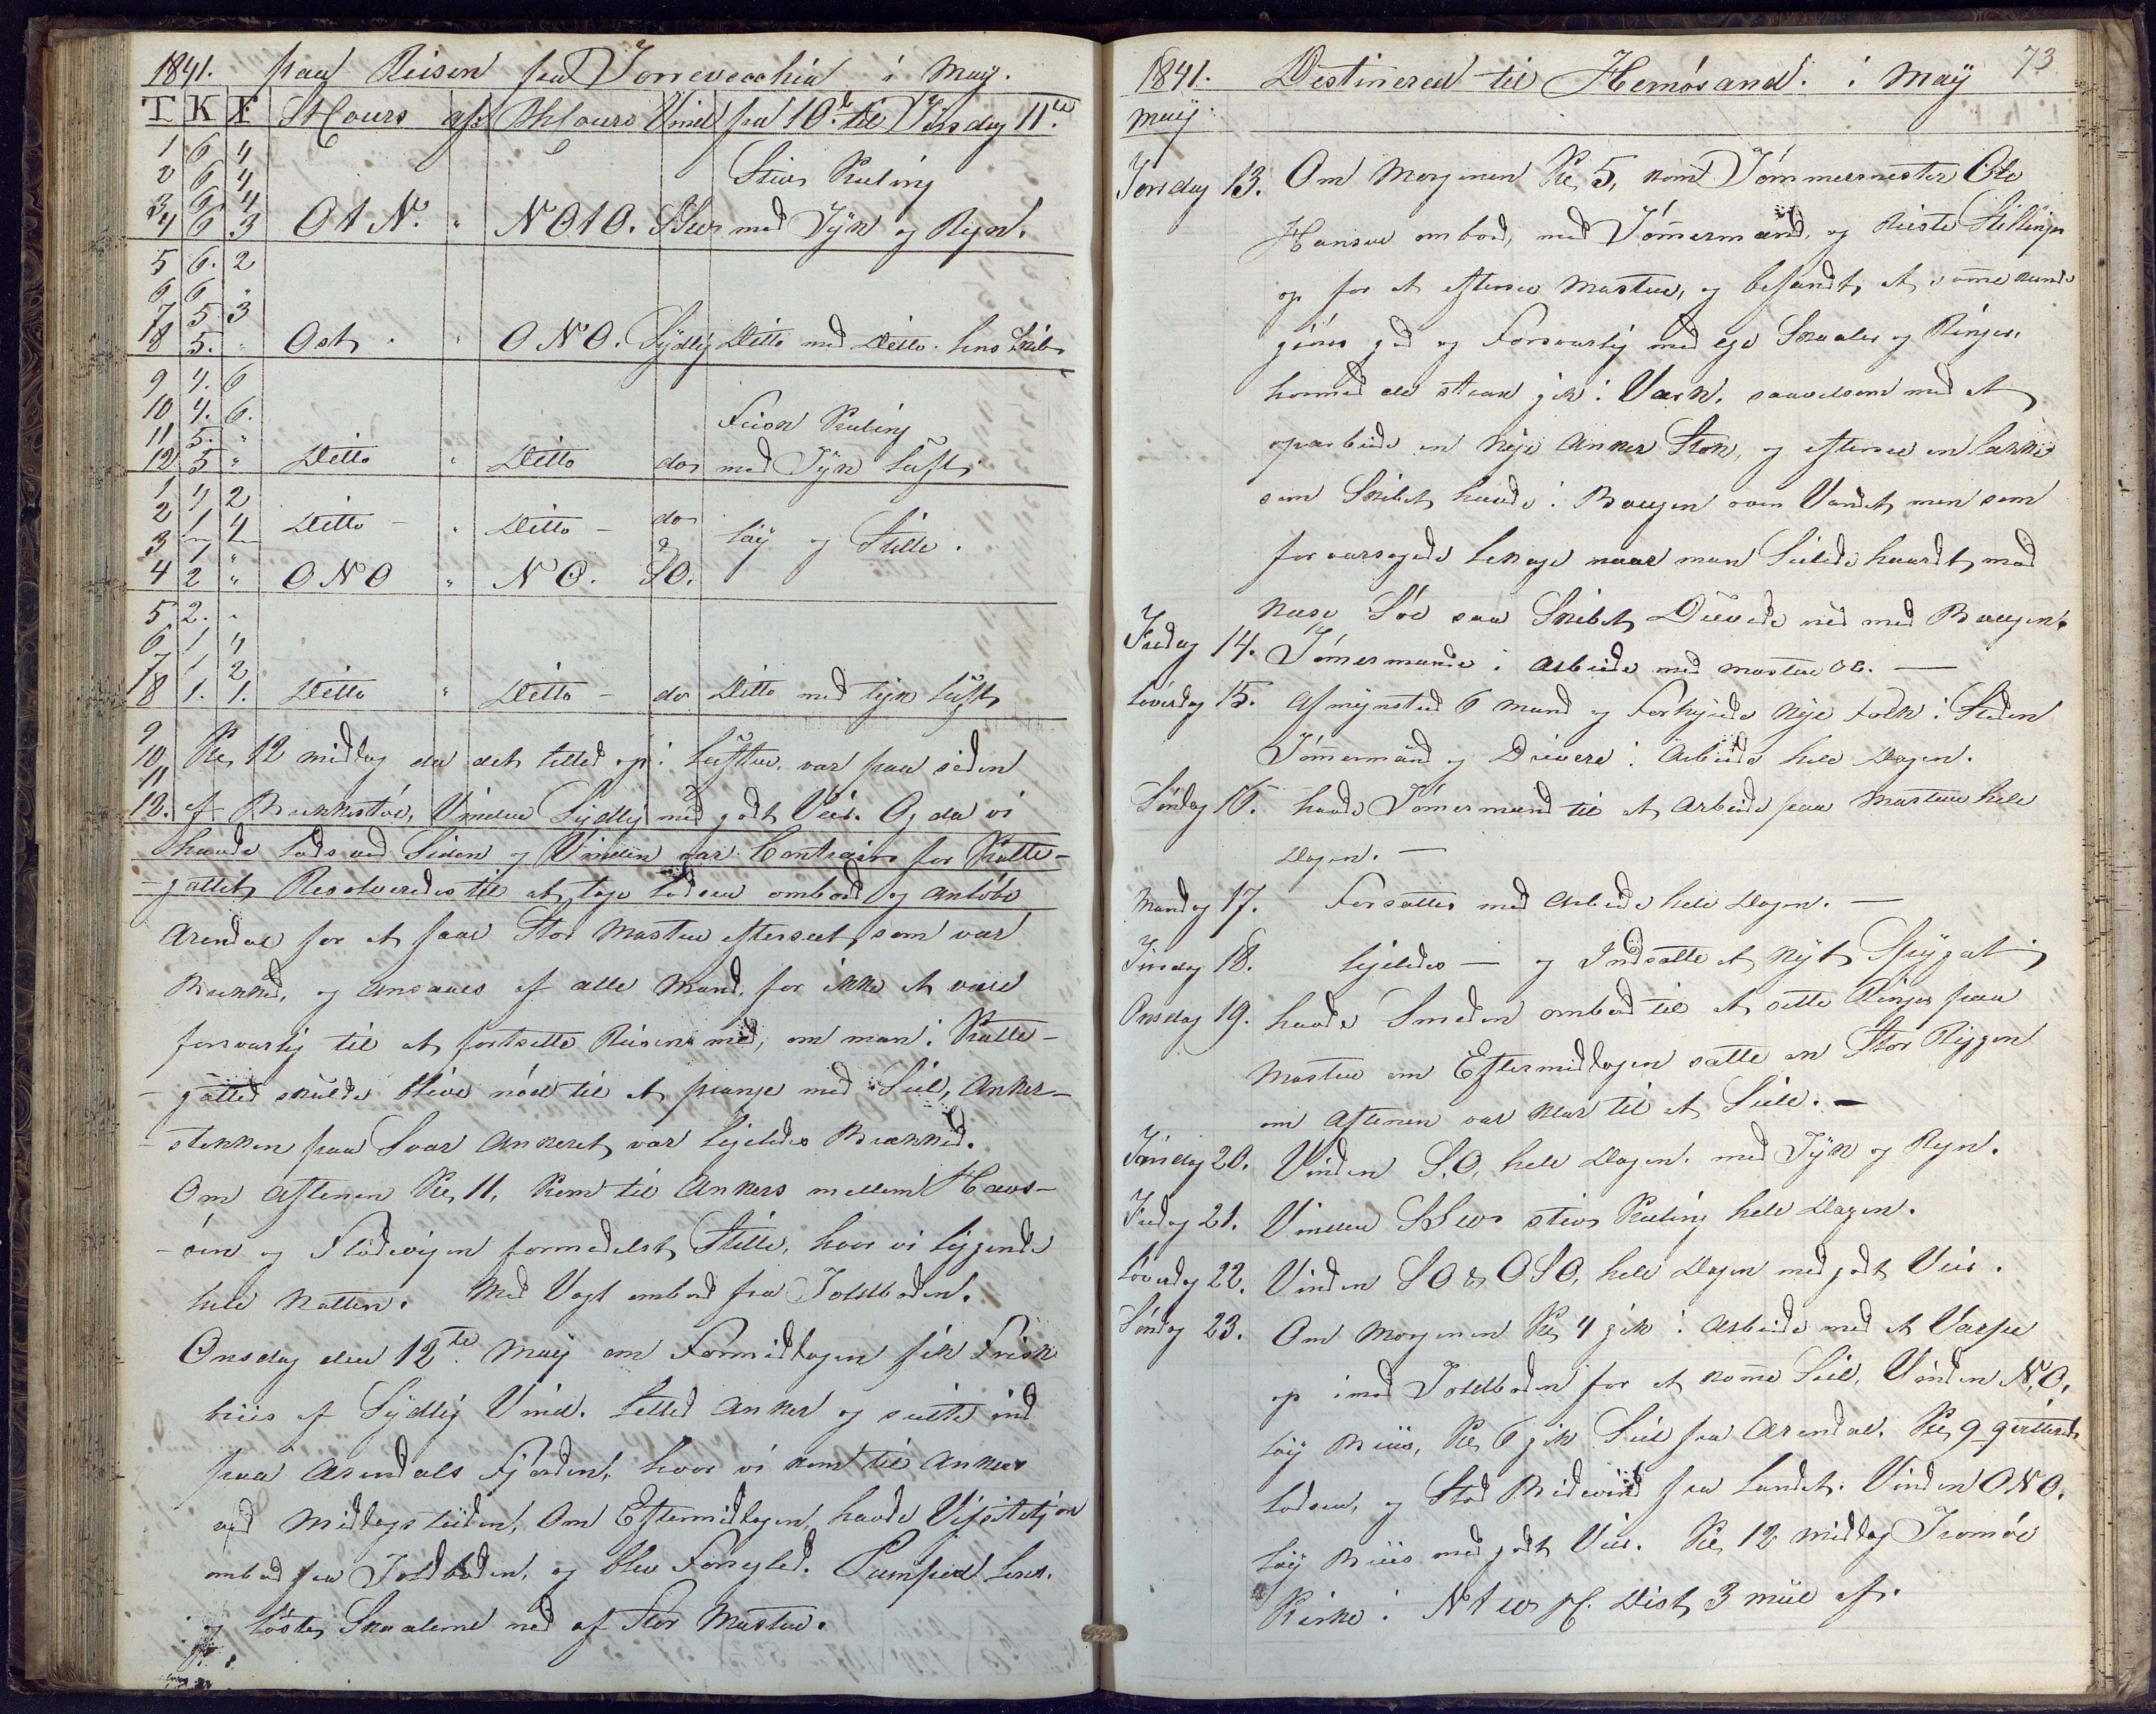 1841. paa Reisen fra Torrevecchia i May.
T K F St Cours af: Bh Cours Vind fra 10de til Tirsdag 11te
1 6 4
2 6 4 Stiv Kuling
3 6 4
4 6 3 O t N. " N O t O. SSW med Tÿk og Regn.
5 6. 2
6 6 "
7 5 3
8 5. " Ost " O N O. Sÿdlig Ditto med Ditto. lens Skib
9 4. 6
10 4. 6. Frisk Kuling
11 5. "
12 5 " Ditto " Ditto do med Tÿk Luft
1 4 2
2 1 4 Ditto - " Ditto - do
3 1 " Løÿ og Stille.
4 2 " O N O " N O. SO.
5 2. "
6 1 4
7 1 2
8 1. 1. Ditto " Ditto - do Ditto med tÿk Luft
9
10 Kl, 12 middag da det letted op i Luften, var paa siden
11
12. af Brekkestøe, Vinden Sÿdlig med godt Veir. Og da vi
havde Lods ved Siden og Vinden var Contrair for Katte-
-gattet, Resolveredes til at tage Lodsen ombord og anløbe
Arendal for at faae Stor Masten efterseet, som var
Brækked, og ansaaes af alle Mand, for ikke at være
forsvarlig til at fortsette Reisen med, om man i Katte-
-gatted skulde blive nød til at prange med Seil, Anker-
-stokken paa Svær Ankeret var ligeledes Brækked.
Om Aftenen Kl, 11, kom til Ankers mellem Havs-
-øen og Flødevigen formedelst Stille, hvor vi liggende
hele Natten. Med Vagt ombord fra Toldboden.
Onsdag den 12te May om Formiddagen fik Frisk
briis af Sÿdlig Vind. Letted Anker og seilte ind
paa Arendals Fjorden, hvor vi kom til Ankers
ved Middagstiden, Om Eftermiddagen, havde Visitation
ombord fra Toldboden, og blev Forseglet. Pumped lens.
og løste, Skaalerne ned af Stor Masten.
1841. Destinered til Hernøsand. i May 73
May
Torsdag 13. Om Morgenen Kl, 5, kom Tømmermester Ole
Hansen ombord, med Tømermænd, og Reiste Stillinger
op for at efterse Masten, og befandt, at samme kunde
gjøres god og Forsvarlig med ege Skaaler og Ringer,
hvormed de strax gik i Værk, saavelsom med at
oparbeide en Nÿe Anker Stok, og efterse en Lække
som Skibet havde i Bougen over Vandet, men som
foraarsagede Lekage naar man Seilede haardt, mod
Næse Søe saa Skibet Duvede ned med Bougen.
Fredag 14. Tømermænd i Arbeide med Masten &c. —
Løverdag 15. Afmÿnsted 6 Mand og Forhÿrede Nÿe Folk i Steden
Tømmermænd og Drivere i Arbeide hele Dagen.
Søndag 16. havde Tømermænd til at Arbeide paa Masten hele
Dagen. —
Mandag 17. Forsattes med Arbeide hele Dagen. —
Tirsdag 18. Ligeledes — og Indsatte et Nÿt Spÿgat
Onsdag 19. havde Smeden ombord til at sette Ringer paa
Masten om Eftermiddagen satte an Stor Riggen
om Aftenen var klar til at Seile. —
Torsdag 20. Vinden S,O, hele Dagen. med Tÿk og Regn.
Fredag 21. Vinden SSW stiv Kuling hele Dagen.
Løverdag 22. Vinden SO & OSO, hele Dagen med godt Veir.
Søndag 23. Om Morgenen Kl, 4 gik i Arbeide med at Varpe
op imod Toldboden for at komme Seil, Vinden N,O,
Løÿ Briis, Kl, 6 gik Seil fra Arendal. Kl, 9 qviterede
Lodsen, og Stod Bidevind fra Landet. Vinden O N O.
Løÿ Briis med godt Veir. Kl, 12 Middag Tromøe
Kirke i N t W Dist, 3 miil af.